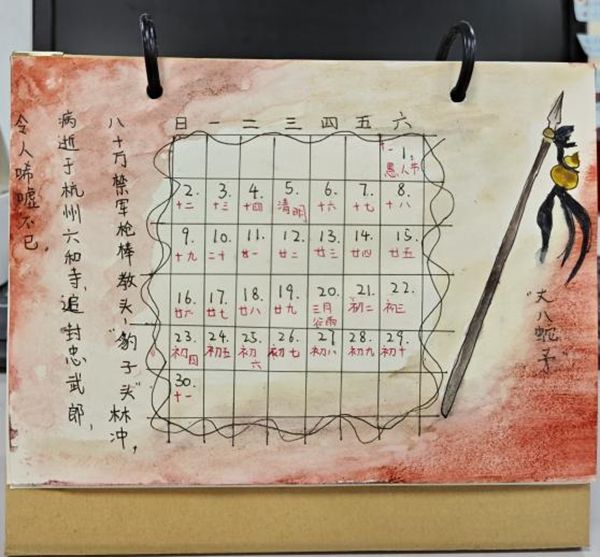 “丈八蛇矛”
日 一 二 三 四 五 六
1.
十一
愚人节
2. 3. 4. 5. 6. 7. 8.
十二 十三 十四 清明 十六 十七 十八
9. 10. 11. 12. 13. 14. 15.
十九 二十 廿一 廿二 廿三 廿四 廿五
16. 17. 18. 19. 20. 21. 22.
廿六 廿七 廿八 廿九 三月 初二 初三
谷雨
23. 24. 25. 26. 27. 28. 29.
初四 初五 初六 初七 初八 初九 初十
30.
十一
八十万禁军枪棒教头,“豹子头”林冲,
病逝于杭州六和寺,追封忠武郎,
令人唏嘘不已。